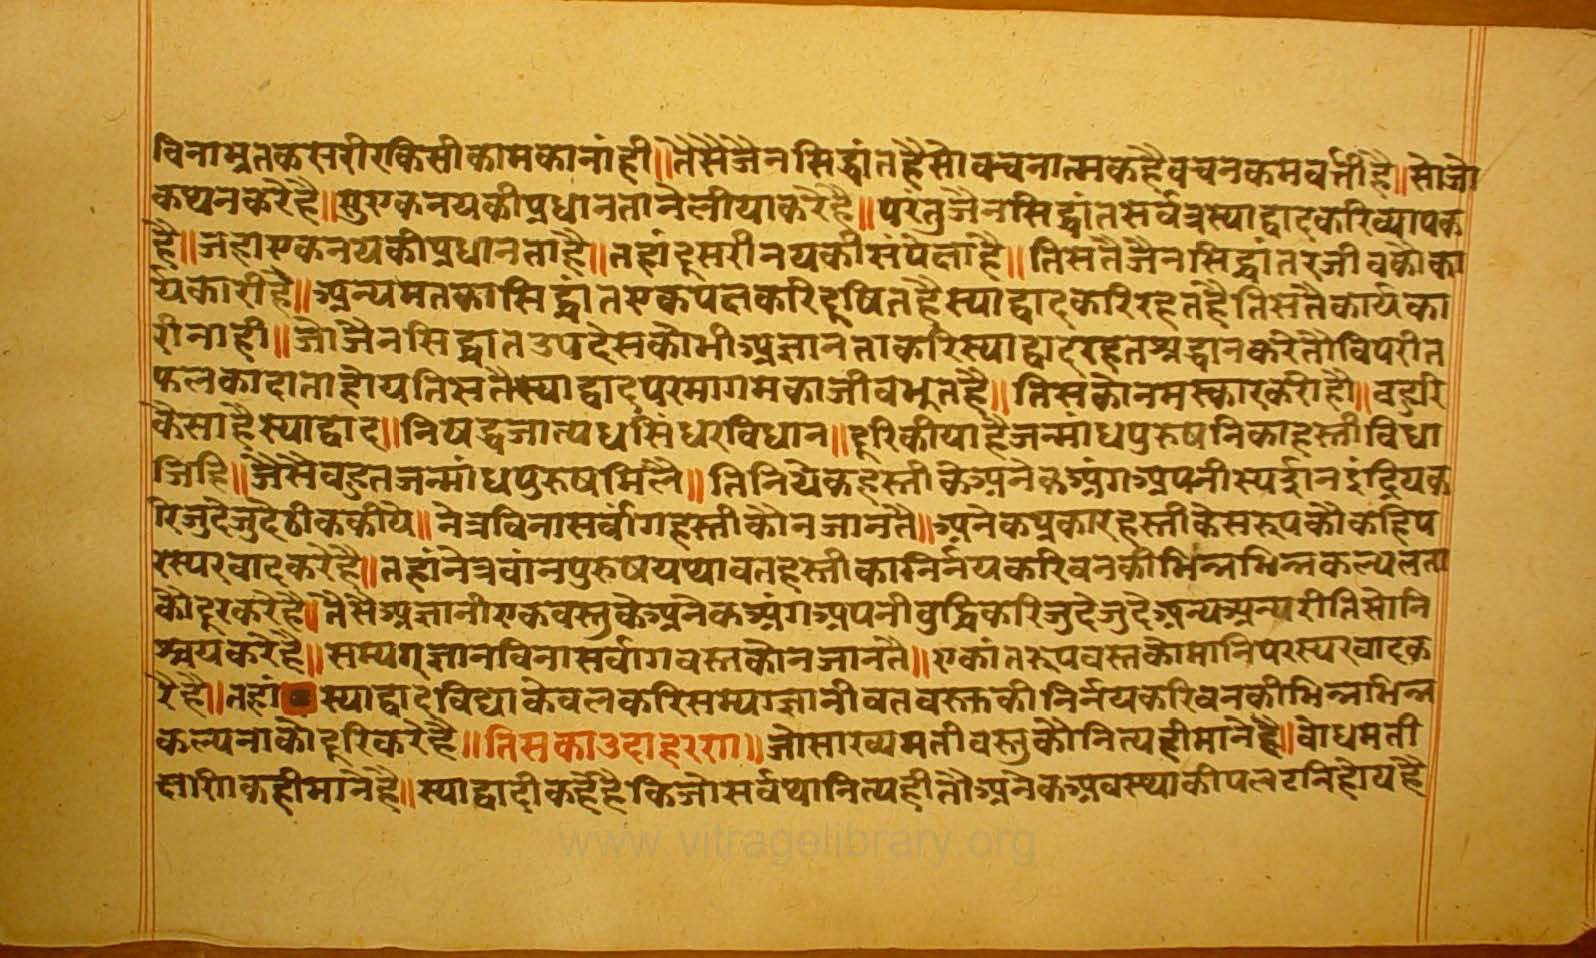 विनामृतकसरीरकिसीकामकानांही॥तैसैजैनसिद्धांतहैसोवचनात्मकहैवचनकमवर्त्तीहै॥सोजो
कथनकरैहै॥सुएकनयकीप्रधानतानैलीयाकरैहै॥परंतुजैनसिद्धांतसर्वत्रस्याद्वादकरिव्यापक
है॥जहांएकनयकीप्रधानताहै॥तहांदूसरीनयकीसंपेक्षाहै॥तिसतैजैनसिद्धांतरजीवकौका
र्यकारीहै॥अन्यमतकासिद्धांतएकपक्षकरिदूषितहैस्याद्वादकरिरहतहैतिसतैकार्यका
रीनाही॥जोजैनसिद्धांतउपदेसकौभीअज्ञानताकरिस्याद्वादरहतश्रद्धानकरैतौविपरीत
फलकादाताहोयतिसतैस्याद्वादपरमागमकाजीवभूतहै॥तिसकोनमस्कारकरौहौ॥वहुरि
कैसाहैस्याद्वाद॥निषद्धजात्यधसिंधरविधान॥दूरिकीयाहैजन्मांधपुरुषनिकाहस्तीविधा
जिहि॥जैसैवहुतजन्मांधपुरुषमिलै॥तिनियेकहस्तीकेअनेकअंगअपनीस्पर्शनइंद्रियक
रिजुदेजुदेठीककीये॥नेत्रविनासर्वांगहस्तीकौनजानतै॥अनेकप्रकारहस्तीकेसरूपकौकहिप
रस्परवादकरैहै॥तहांनेत्रवांनपुरुषयथावतहस्तीकानिर्नयकरिवनकीभिन्नभिन्नकल्पलता
कौदूरकरैहै॥तैसैअज्ञानीएकवस्तुकेअनेकअंगअपनीवुद्धिकरिजुदेजुदेअन्यअन्यरीतिसोनि
श्चयकरैहै॥सम्यग्ज्ञानविनासर्वांगवस्तकौनजानतै॥एकांतरूपवस्तकौमानिपरस्परवादक
रैहै॥तहां स्याद्वादविद्याकेवलकरिसम्यग्ज्ञानीवतवस्तकीनिर्नयकरिवनकीभिन्नभिन्न
कल्पनाकौदूरिकरैहै॥तिसकाउदाहरण॥जोसांख्यमतीवस्तुकौनित्यहीमानैहै॥वोधमती
क्षणिकहीमानैहै॥स्याद्वादीकहैहैकिजोसर्वथानित्यहीतौअनेकअवस्थाकीपलटनिहोयहै
www.vitragelibrary.org